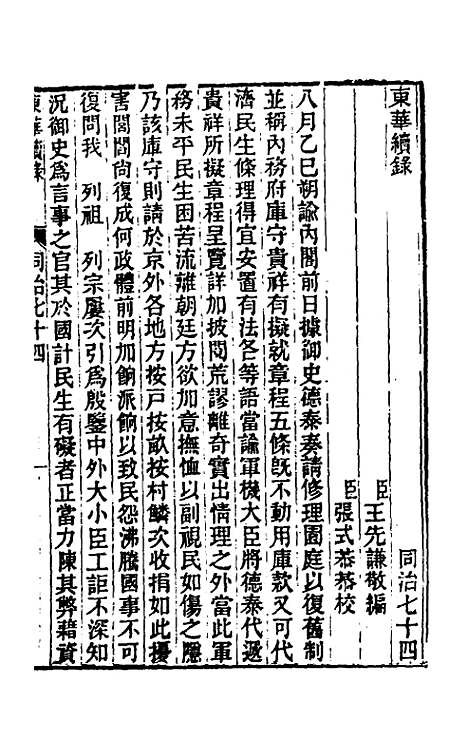 東華續錄
同治七十四
臣王先謙敬編
臣張式恭恭校
八月乙巳朔諭內閣前日據御史德泰奏請修理園庭以復舊制
並稱內務府庫守貴祥有擬就章程五條旣不動用庫款又可代
濟民生條理得宜安置有法各等語當諭軍機大臣將德泰代遞
貴祥所擬章程呈覽詳加披閱荒謬離奇實出情理之外當此軍
務未平民生困苦流離朝廷方欲加意撫恤以副視民如傷之隱
乃該庫守則請於京外各地方按戶按畝按村鱗次收捐如此擾
害閭閻尚復成何政體前明加餉派餉以致民怨沸騰國事不可
復問我 列祖 列宗屢次引爲殷鑒中外大小臣工詎不深知
況御史爲言事之官其於國計民生有礙者正當力陳其弊藉資
東華續錄 同治七十四 一